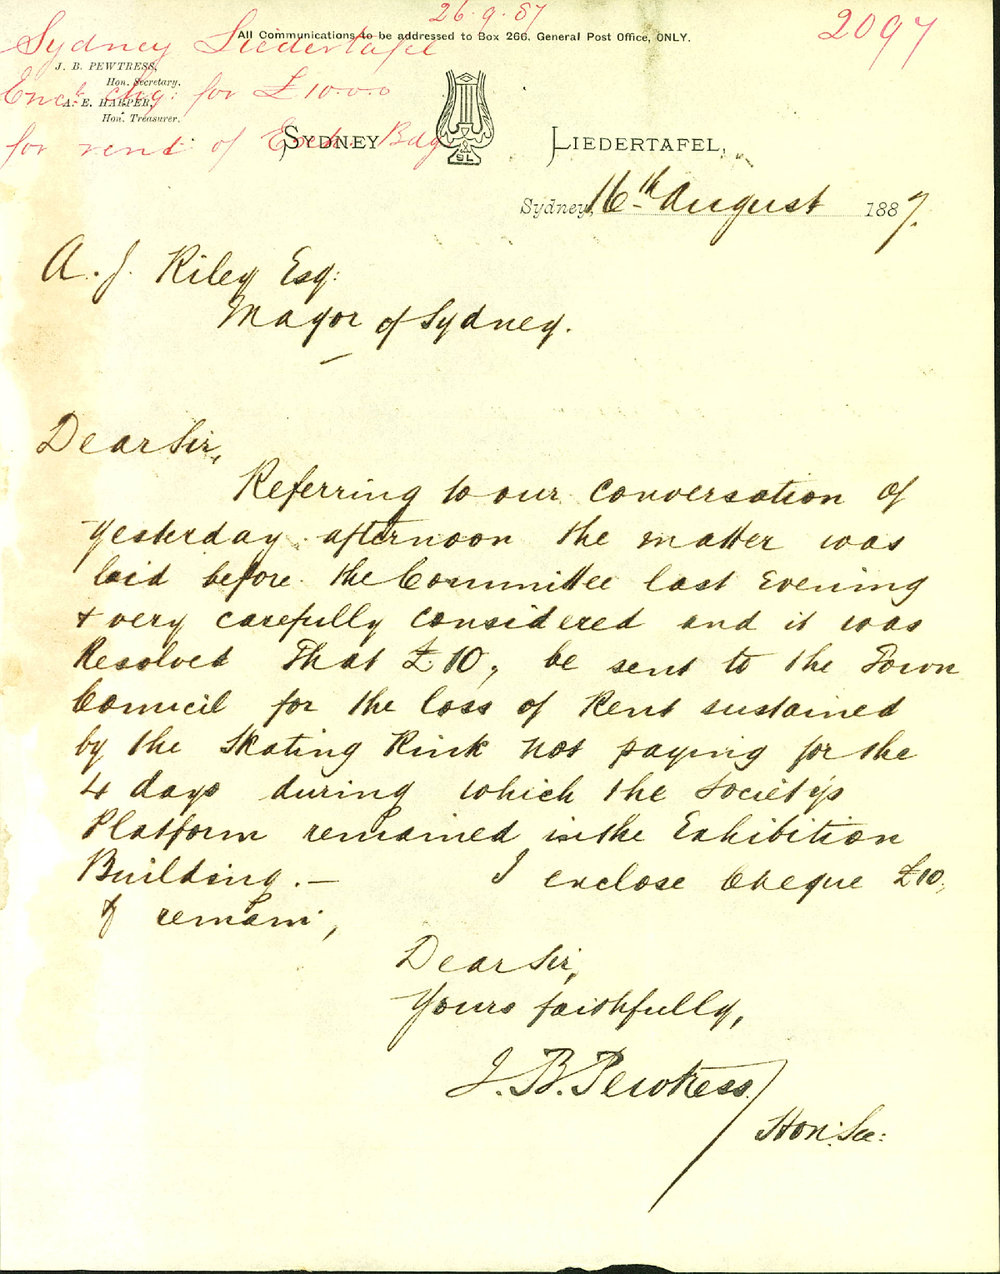 26.9.87
2097
All Communications to be addressed to Box 266, General Post Office, ONLY.
Sydney Liedertafel
J. B. PEWTRESS,
Hon. Secretary.
Encl. chq: for £10.0.0
A. E. HARPER,
Hon. Treasurer.
for rent of Exn. Bdg
SYDNEY LIEDERTAFEL,
SL
Sydney, 16th August 1887.
A. J. Riley Esq:
Mayor of Sydney.
Dear Sir,
Referring to our conversation of
yesterday afternoon the matter was
laid before the Committee last Evening
& very carefully considered and it was
Resolved That £10, be sent to the Town
Council for the loss of Rent sustained
by the Skating Rink not paying for the
4 days during which the Society's
Platform remained in the Exhibition
Building.— I enclose Cheque £10,
& remain,
Dear Sir,
Yours faithfully,
J. B. Pewtress
Hon: Sec: